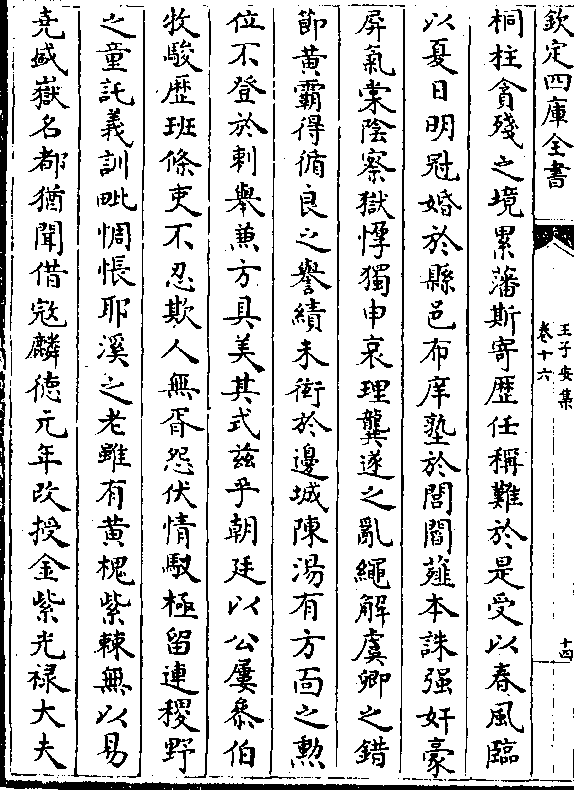 欽定四庫全書
王子安集
卷十六
十四
桐柱貪殘之境累藩斯寄歴任稱難於是受以春風臨
以夏日明冠婚於縣邑布庠塾於閭閻薤本誅强奸豪
屏氣棠隂察獄惸獨申哀理龔遂之亂繩解虞卿之錯
節黄霸得循良之譽績未銜於邊城陳湯有方面之勲
位不登於刺舉兼方具美其式兹乎朝廷以公屢叅伯
牧駿歴班條吏不忍欺人無胥怨伏情馭極留連稷野
之童託義訓毗惆悵耶溪之老雖有黄槐紫棘無以易
堯咸嶽名都猶聞借宼麟徳元年改授金紫光禄大夫